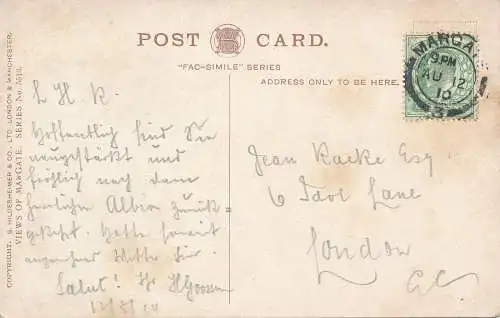 POST CARD.
"FAC-SIMILE" SERIES
ADDRESS ONLY TO BE HERE.
COPYRIGHT. S. HILDESHEIMER & CO., LTD. LONDON & MANCHESTER.
VIEWS OF MARGATE. SERIES No.
MARGA
9 PM
AU 12
10
L H K.
Hoffentlich sind Sie
neugestärkt und
fröhlich nach dem
herrlichen Albion zurück=
gekehrt. Hatte soweit
Wetter hier.
Salut! Ihr
12/8/10
Jean Esq
6 Lane
London
E.C.